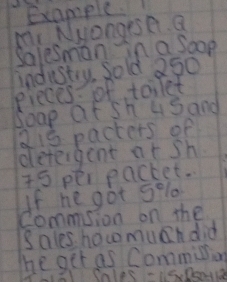 Example:
Mr Nyongesa a
Salesman in a Soap
industry, Sold 250
pieces of toilet
Soap at Sh 45 and
215 packets of
detergent at Sh
75 per packet.
If he got 5%
Commsion on the
Sales how much did
he get as Commission
Sales = 45x250+